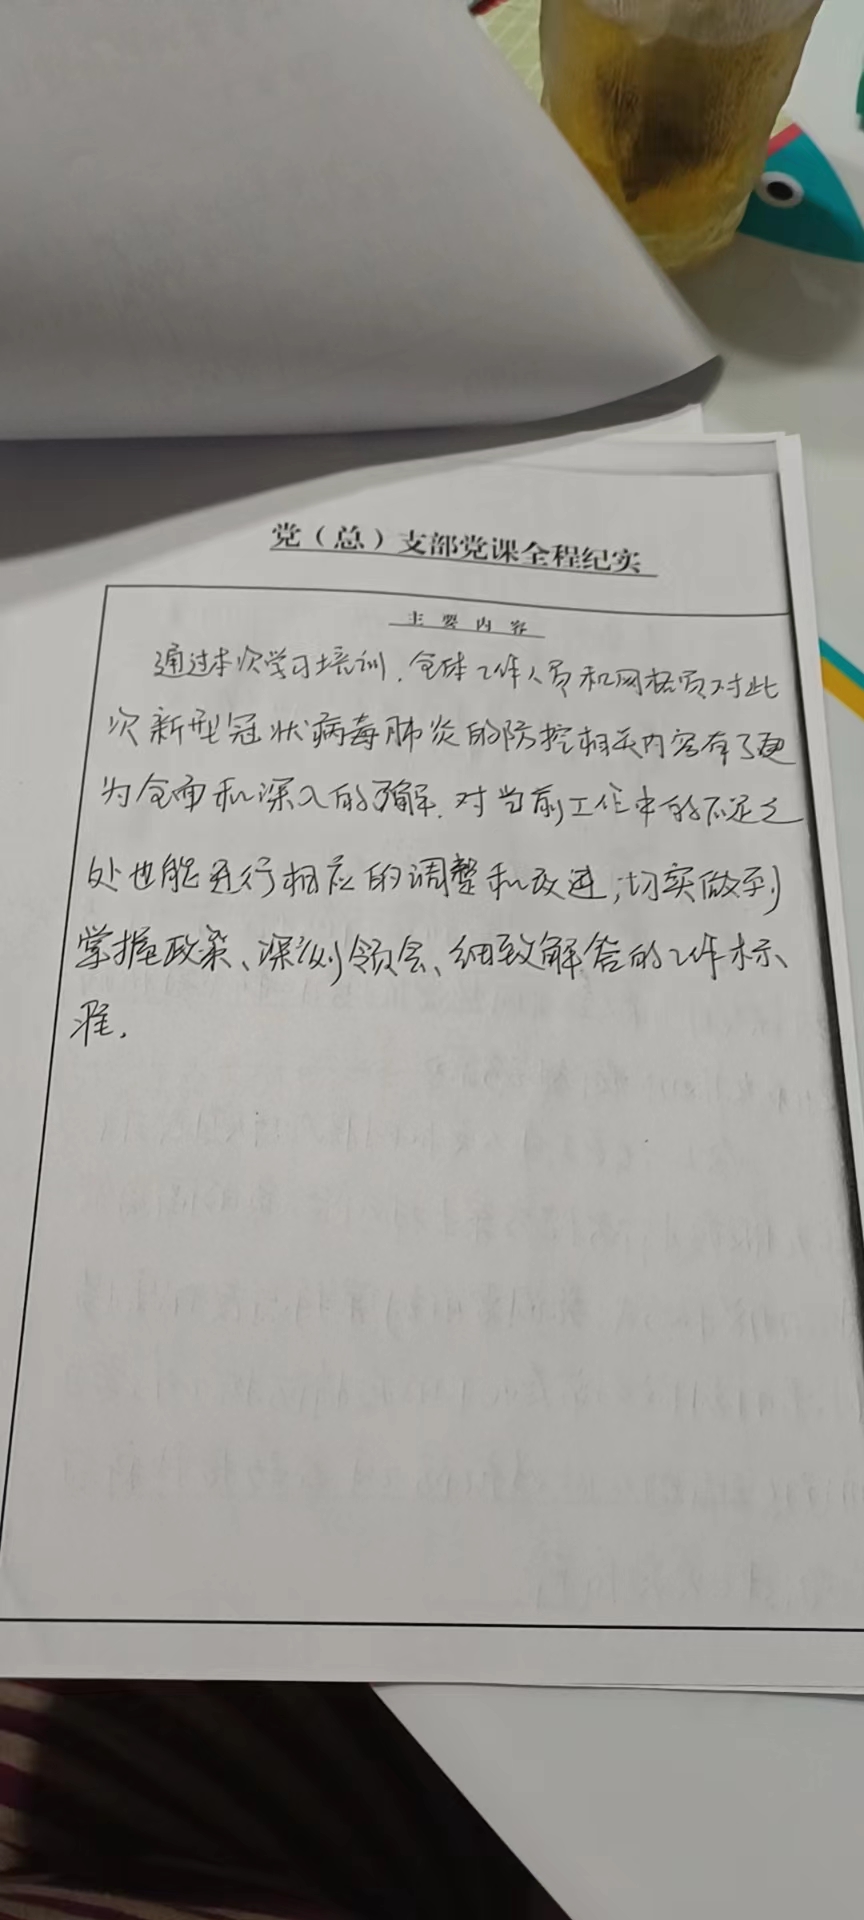 党（总）支部党课全程纪实
主要内容
通过本次学习培训，全体工作人员和网格员对此
次新型冠状病毒肺炎的防控相关内容有了更
为全面和深入的了解，对当前工作中的不足之
处也能进行相应的调整和改进，切实做到
掌握政策、深刻领会、细致解答的工作标
准。